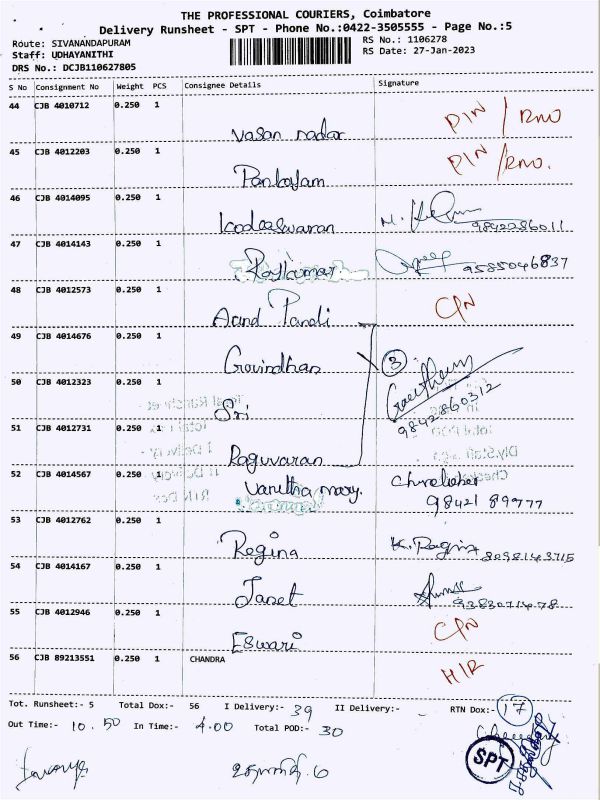 THE PROFESSIONAL COURIERS, Coimbatore
Delivery Runsheet - SPT - Phone No.:0422-3505555 - Page No.:5
Route: SIVANANDAPURAM RS No.: 1106278
Staff: UDHAYANITHI RS Date: 27-Jan-2023
DRS No.: DCJB110627805
S No Consignment No Weight PCS Consignee Details Signature
44 CJB 4010712 0.250 1 PIN / RNO
Vasan nadar
45 CJB 4012203 0.250 1 PIN / RNO.
Pankajam
46 CJB 4014095 0.250 1
Kodeeswaran 9842236011
47 CJB 4014143 0.250 1
Rajkumar 9585046837
48 CJB 4012573 0.250 1 CPN
Pandi
49 CJB 4014676 0.250 1 3
Govindhan
50 CJB 4012323 0.250 1 Gowtham
Sri 9842860312
51 CJB 4012731 0.250 1
Raguvaran
52 CJB 4014567 0.250 1
Vanitha mary. 98421 89777
53 CJB 4012762 0.250 1
Regina K. Regina 8098143715
54 CJB 4014167 0.250 1
Janet 9383071478
55 CJB 4012946 0.250 1 CPN
Eswari
56 CJB 89213551 0.250 1 CHANDRA H/R
Tot. Runsheet:- 5 Total Dox:- 56 I Delivery:- 39 II Delivery:- RTN Dox:- 17
Out Time:- 10.50 In Time:- 4.00 Total POD:- 30
SPT